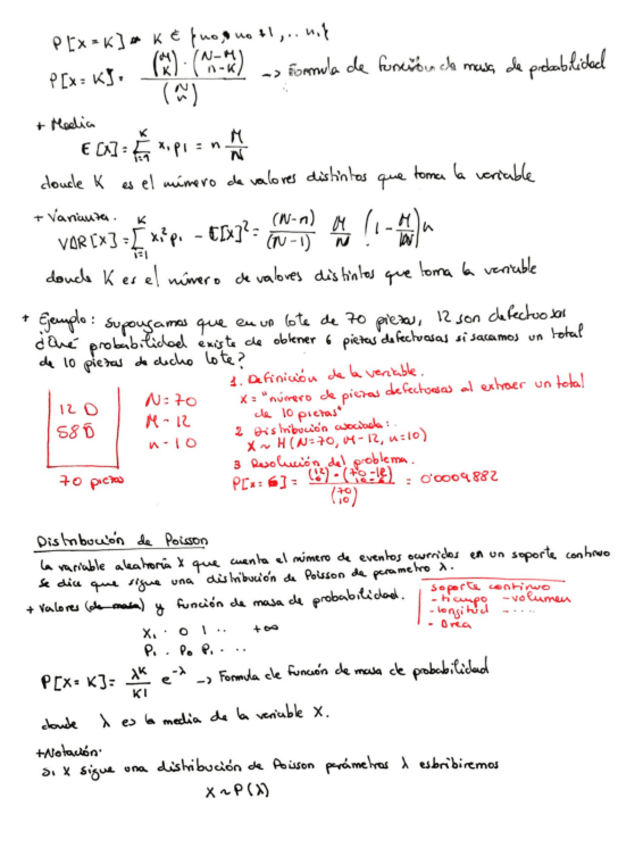 P[X=K] = K ∈ {n₀, n₀+1, .. n₁}
P[X=K] = \frac{\binom{M}{K} · \binom{N-M}{n-K}}{\binom{N}{n}} -> Formula de función de masa de probabilidad
+ Media
E[X] = \sum_{i=1}^{K} xᵢ pᵢ = n \frac{M}{N}
donde K es el número de valores distintos que toma la variable
+ Varianza.
VAR[X] = \sum_{i=1}^{K} xᵢ² pᵢ - E[X]² = \frac{(N-n)}{(N-1)} \frac{M}{N} (1 - \frac{M}{N}) n
donde K es el número de valores distintos que toma la variable
+ Ejemplo: supongamos que en un lote de 70 piezas, 12 son defectuosas
¿Qué probabilidad existe de obtener 6 piezas defectuosas si sacamos un total
de 10 piezas de dicho lote?
12 D
58 D̄
70 piezas
N = 70
M - 12
n - 10
1. Definición de la variable.
X = "número de piezas defectuosas al extraer un total
de 10 piezas"
2 Distribución asociada:.
X ~ H(N=70, M-12, n=10)
3 Resolución del problema.
P[X = 6] = \frac{\binom{12}{6} · \binom{70-12}{10-6}}{\binom{70}{10}} = 0'0009882
Distribución de Poisson
La variable aleatoria X que cuenta el número de eventos ocurridos en un soporte continuo
se dice que sigue una distribución de Poisson de parametro λ.
+ Valores (de masa) y función de masa de probabilidad.
soporte continuo
- tiempo - volumen
- longitud - ....
- Área
Xᵢ . 0 1 .. +∞
Pᵢ . P₀ P₁ . ..
P[X=K] = \frac{λᴷ}{K!} e^{-λ} -> Formula de función de masa de probabilidad
donde λ es la media de la variable X.
+Notación.
Si X sigue una distribución de Poisson parámetros λ esbribiremos
X ~ P(λ)